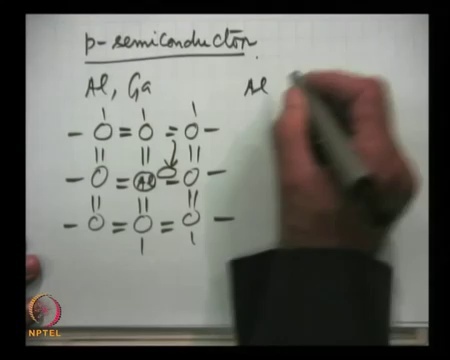 p-semiconductor.
Al, Ga Al
Al
NPTEL